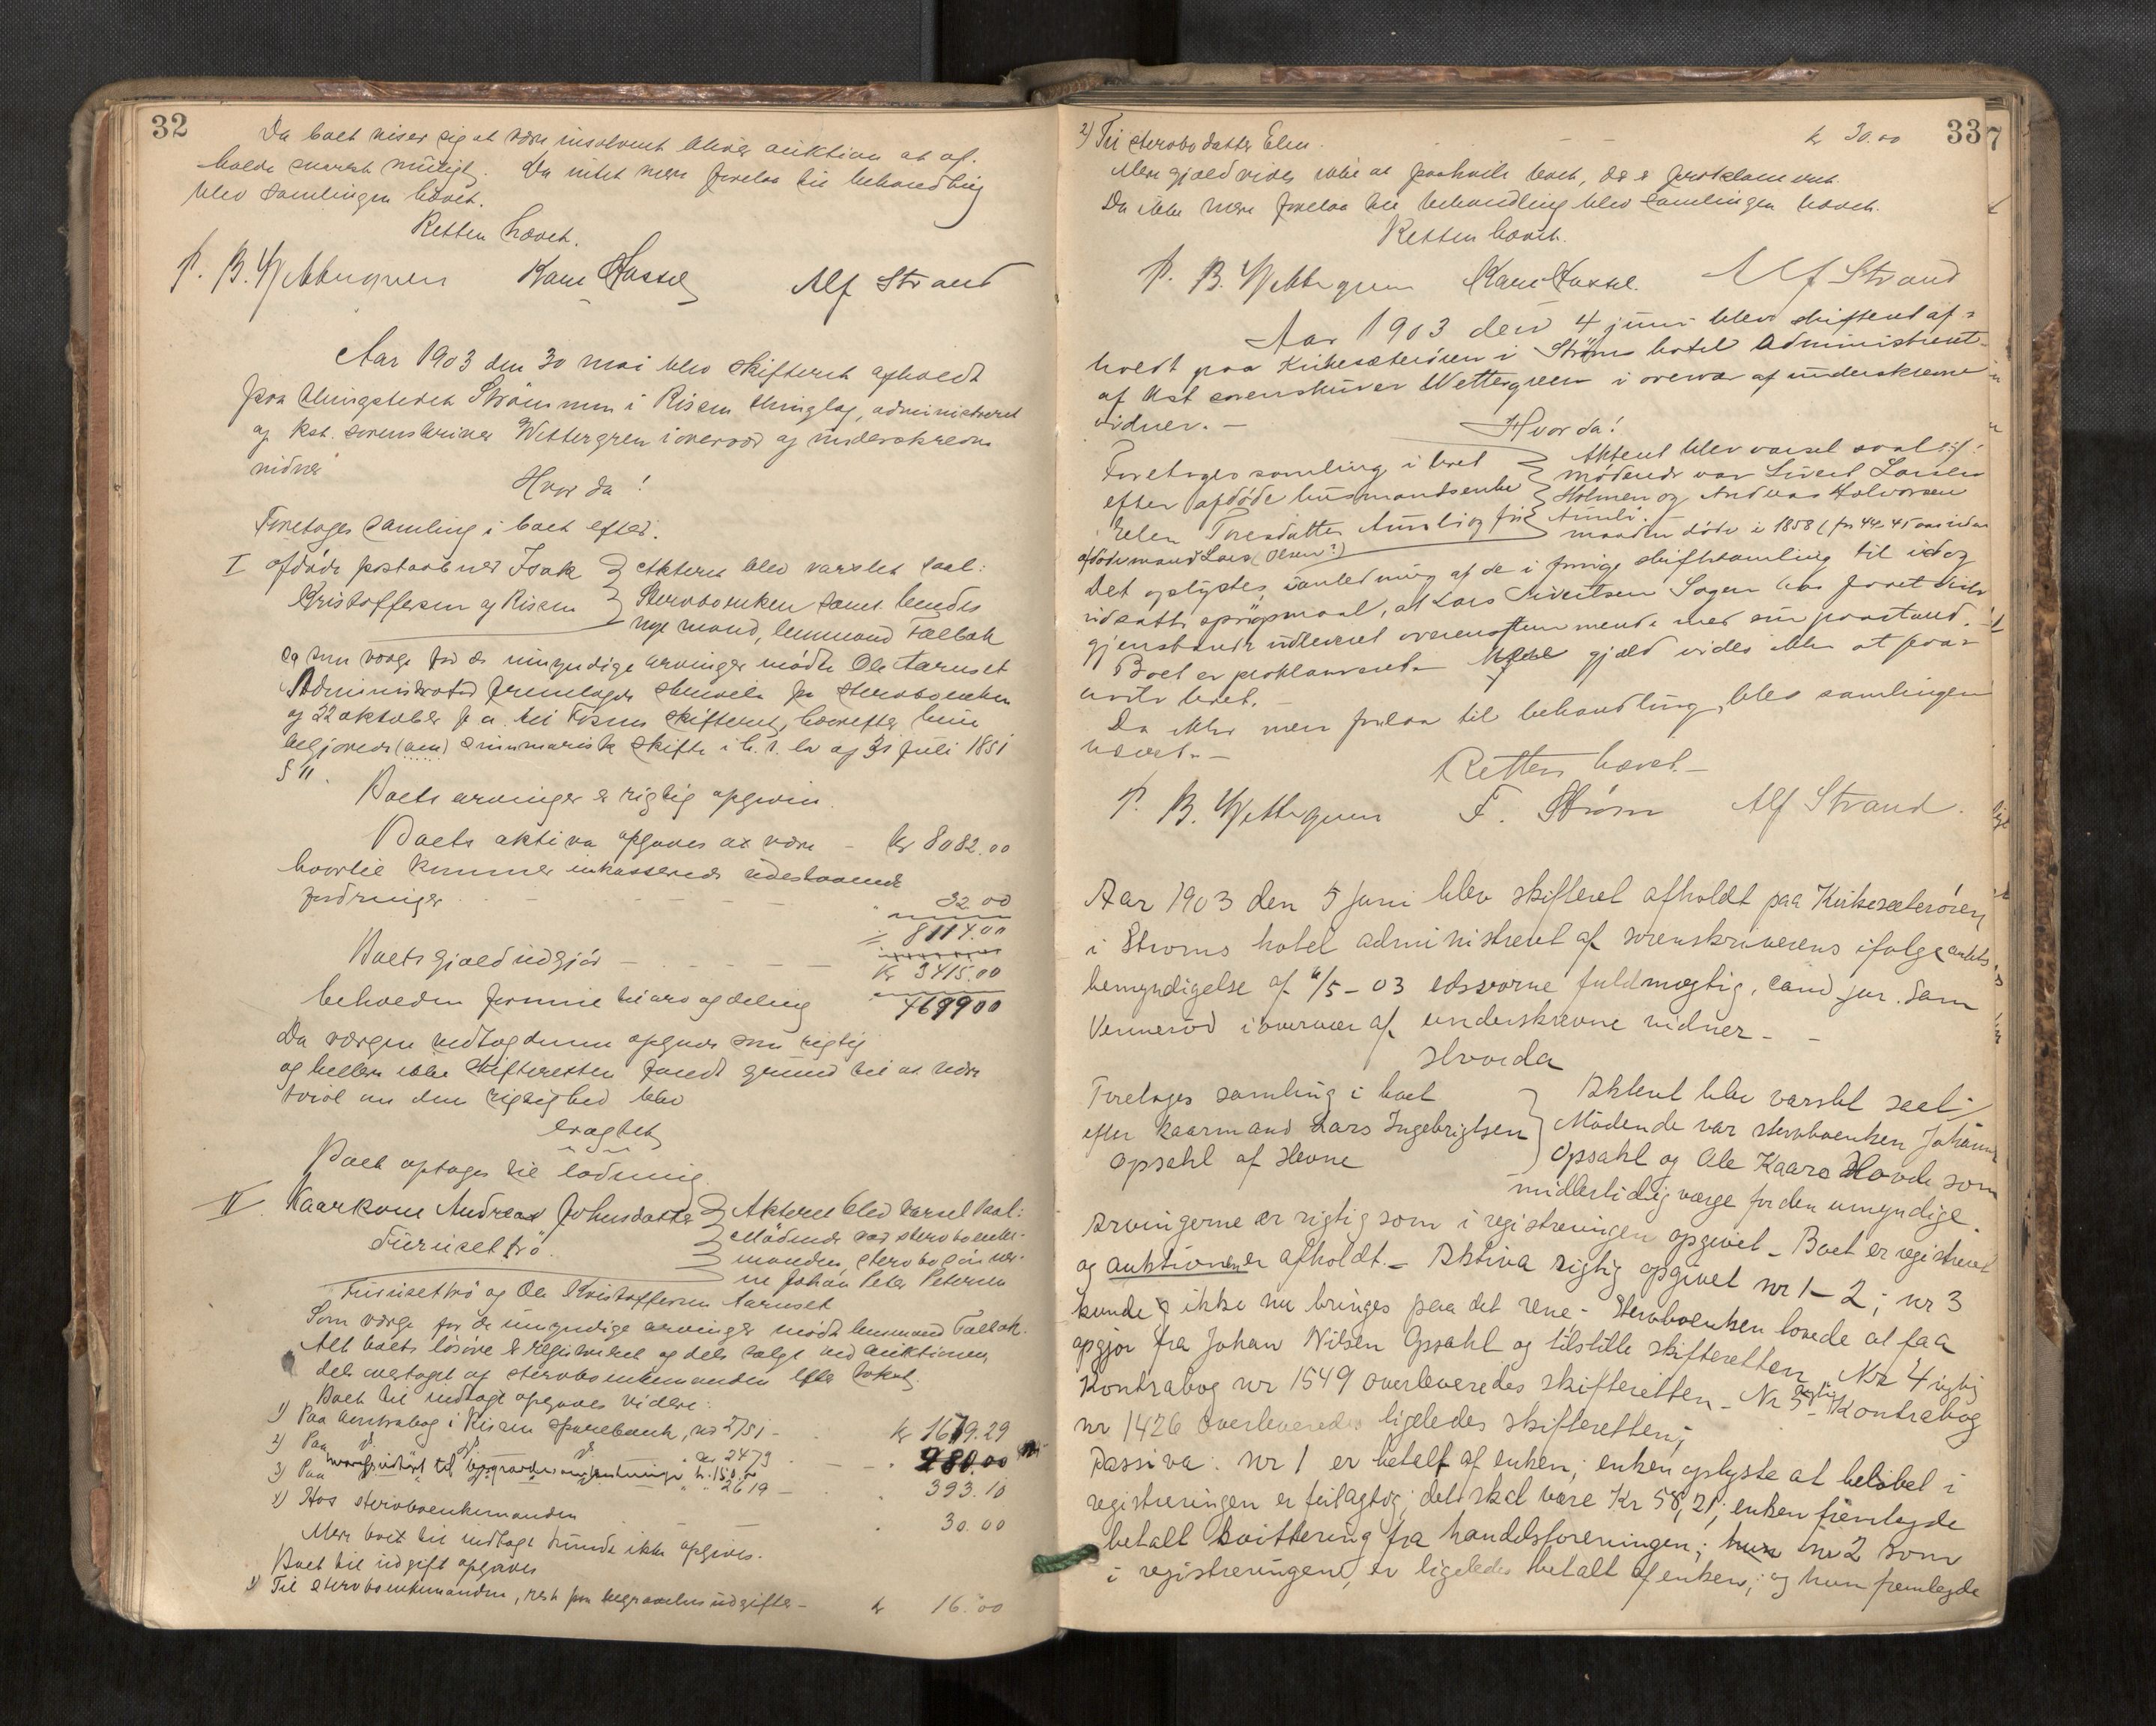 32
Da boet viser sig at være insolvent bliver auktion at af-
holde snarest muligt. Da intet mere forelaa til behandling
blev samlingen hævet.
Retten hævet.
P. B. Wettergreen Karl Hassel Alf Strand
Aar 1903 den 30 mai blev skifteret afholdt
paa thingstedet Strømmen i Rissen thinglag, administreret
af kst. sorenskriver Wettergreen i overvær af underskrevne
vidner
Hvorda!
Foretages samling i boet efter:
I afdøde postaabner Isak
Kristoffersen af Rissen
Akteret blev varslet saal:
Stervboenken samt hendes
nye mand, lensmand Fallak
og som værge for de umyndige arvinger mødte Ole Aarnset
Administrator fremlagde skrivelse fra stervboenken
af 22 oktober f.a. til Fosens skifteret, hvorefter hun
begjærede (en) summarisk skifte i h.t. lov af 31 juli 1851
§ 11.
Boets arvinger er rigtig opgiven.
Boets aktiva opgaves at være - kr 8082.00
hvortil kommer inkasserede udestaaende
fordringer - - - - 32.00
= 8114.00
Boets gjæld udgjør - - - - kr 3415.00
beholden formue til arv og deling 4699 00
Da værgen vedtog denne opgave som rigtig
og heller ikke skifteretten fandt grund til at nære
tvivl om dens rigtighed blev
eragtet
Boet optages til lodning
II. Kaarkone Andrea Johnsdatter
Furusettrø.
Akteret blev varslet saal:
Mødende var stervboenke-
manden, stervbosønner-
ne Johan Peter Petersen
Furusettrø og Ole Kristoffersen Aarnset
Som værge for de umyndige arvinger mødte lensmand Fallak.
Alt boets løsøre er registreret og dels solgt ved auktionen,
dels overtaget af stervboenkemanden efter takst.
Boet til indtægt opgaves videre:
1) Paa kontrabog i Rissen sparebank, no 2751 - kr 1679.29
2) Paa d° d° d° no 2479 - - 280.00
hvoraf udført til begravelse omkostninger kr. 150.00
3) Paa " " 2619 - 393.10
4) Hos stervboenkemanden - - 30.00
Mere boet til indtægt kunde ikke opgives.
Boet til udgift opgaves
1) Til stervboenkemanden, rest paa begravelsesudgifter - kr 16.00
337
2) Til stervbodatter Elen - - kr 30.00
Mere gjæld vides ikke at paahvile boet, der er proklameret.
Da ikke mere forelaa til behandling blev samlingen hævet.
Retten hævet.
P. B. Wettergreen Karl Hassel. Alf Strand
Aar 1903 den 4 juni blev skifteret af-
holdt paa Kirksæterøren i Strøms hotel administreret
af kst sorenskriver Wettergreen i overvær af underskrevne
vidner. -
Hvorda!
Foretages samling i boet
efter afdøde husmandsenke
Elen Toresdatter Aunli og før
afdøde mand Lars (Olsen?)
Akteret blev varslet saal:
mødende var Sivert Larsen
Holmen og Andreas Halvorsen
Aunli.
manden døde i 1858 (for 44-45 aar siden
Det oplystes, i anledning af de i forrige skiftesamling til idag
udsatte spørgsmaal, at Lars Sivertsen Sagen har faaet sine
gjenstande udleveret overensstemmende med sin paastand.
Boet er proklameret. Mere gjæld vides ikke at paa-
hvile boet. -
Da ikke mere forelaa til behandling, blev samlingen
hævet. -
Retten hævet. -
P. B. Wettergreen F. Strøm Alf Strand.
Aar 1903 den 5 juni blev skifteret afholdt paa Kirksæterøren
i Strøms hotel administreret af sorenskriverens ifølge amts
bemyndigelse af 11/5 - 03 edsvorne fuldmægtig, cand jur. Sam
Vennerød i overvær af underskrevne vidner - -
Hvorda
Foretages samling i boet
efter kaarmand Lars Ingebrigtsen
Opsahl af Hevne
Akteret blev varslet saal:
Mødende var stervboenken Johanna
Opsahl og Ole Kaare Hovde som
midlertidig værge for den umyndige.
Arvingerne er rigtig som i registreringen opgivet - Boet er registreret
og auktionen er afholdt. - Aktiva rigtig opgivet nr 1 - 2; nr 3
kunde ikke nu bringes paa det rene; - Stervboenken lovede at faa
opgjør fra Johan Nilsen Opsahl og tilstille skifteretten. Nr 4 rigtig
Kontrabog nr 1549 overleveredes skifteretten - Nr 5 rigtig Kontrabog
nr 1426 overleveredes ligeledes skifteretten;
Passiva: nr 1 er betalt af enken; enken oplyste at beløbet i
registreringen er feilagtig; det skal være Kr 58,21; enken fremlagde
betalt kvittering fra handelsforeningen; nr 2 som
i registreringen, er ligeledes betalt af enken; og hun fremlagde